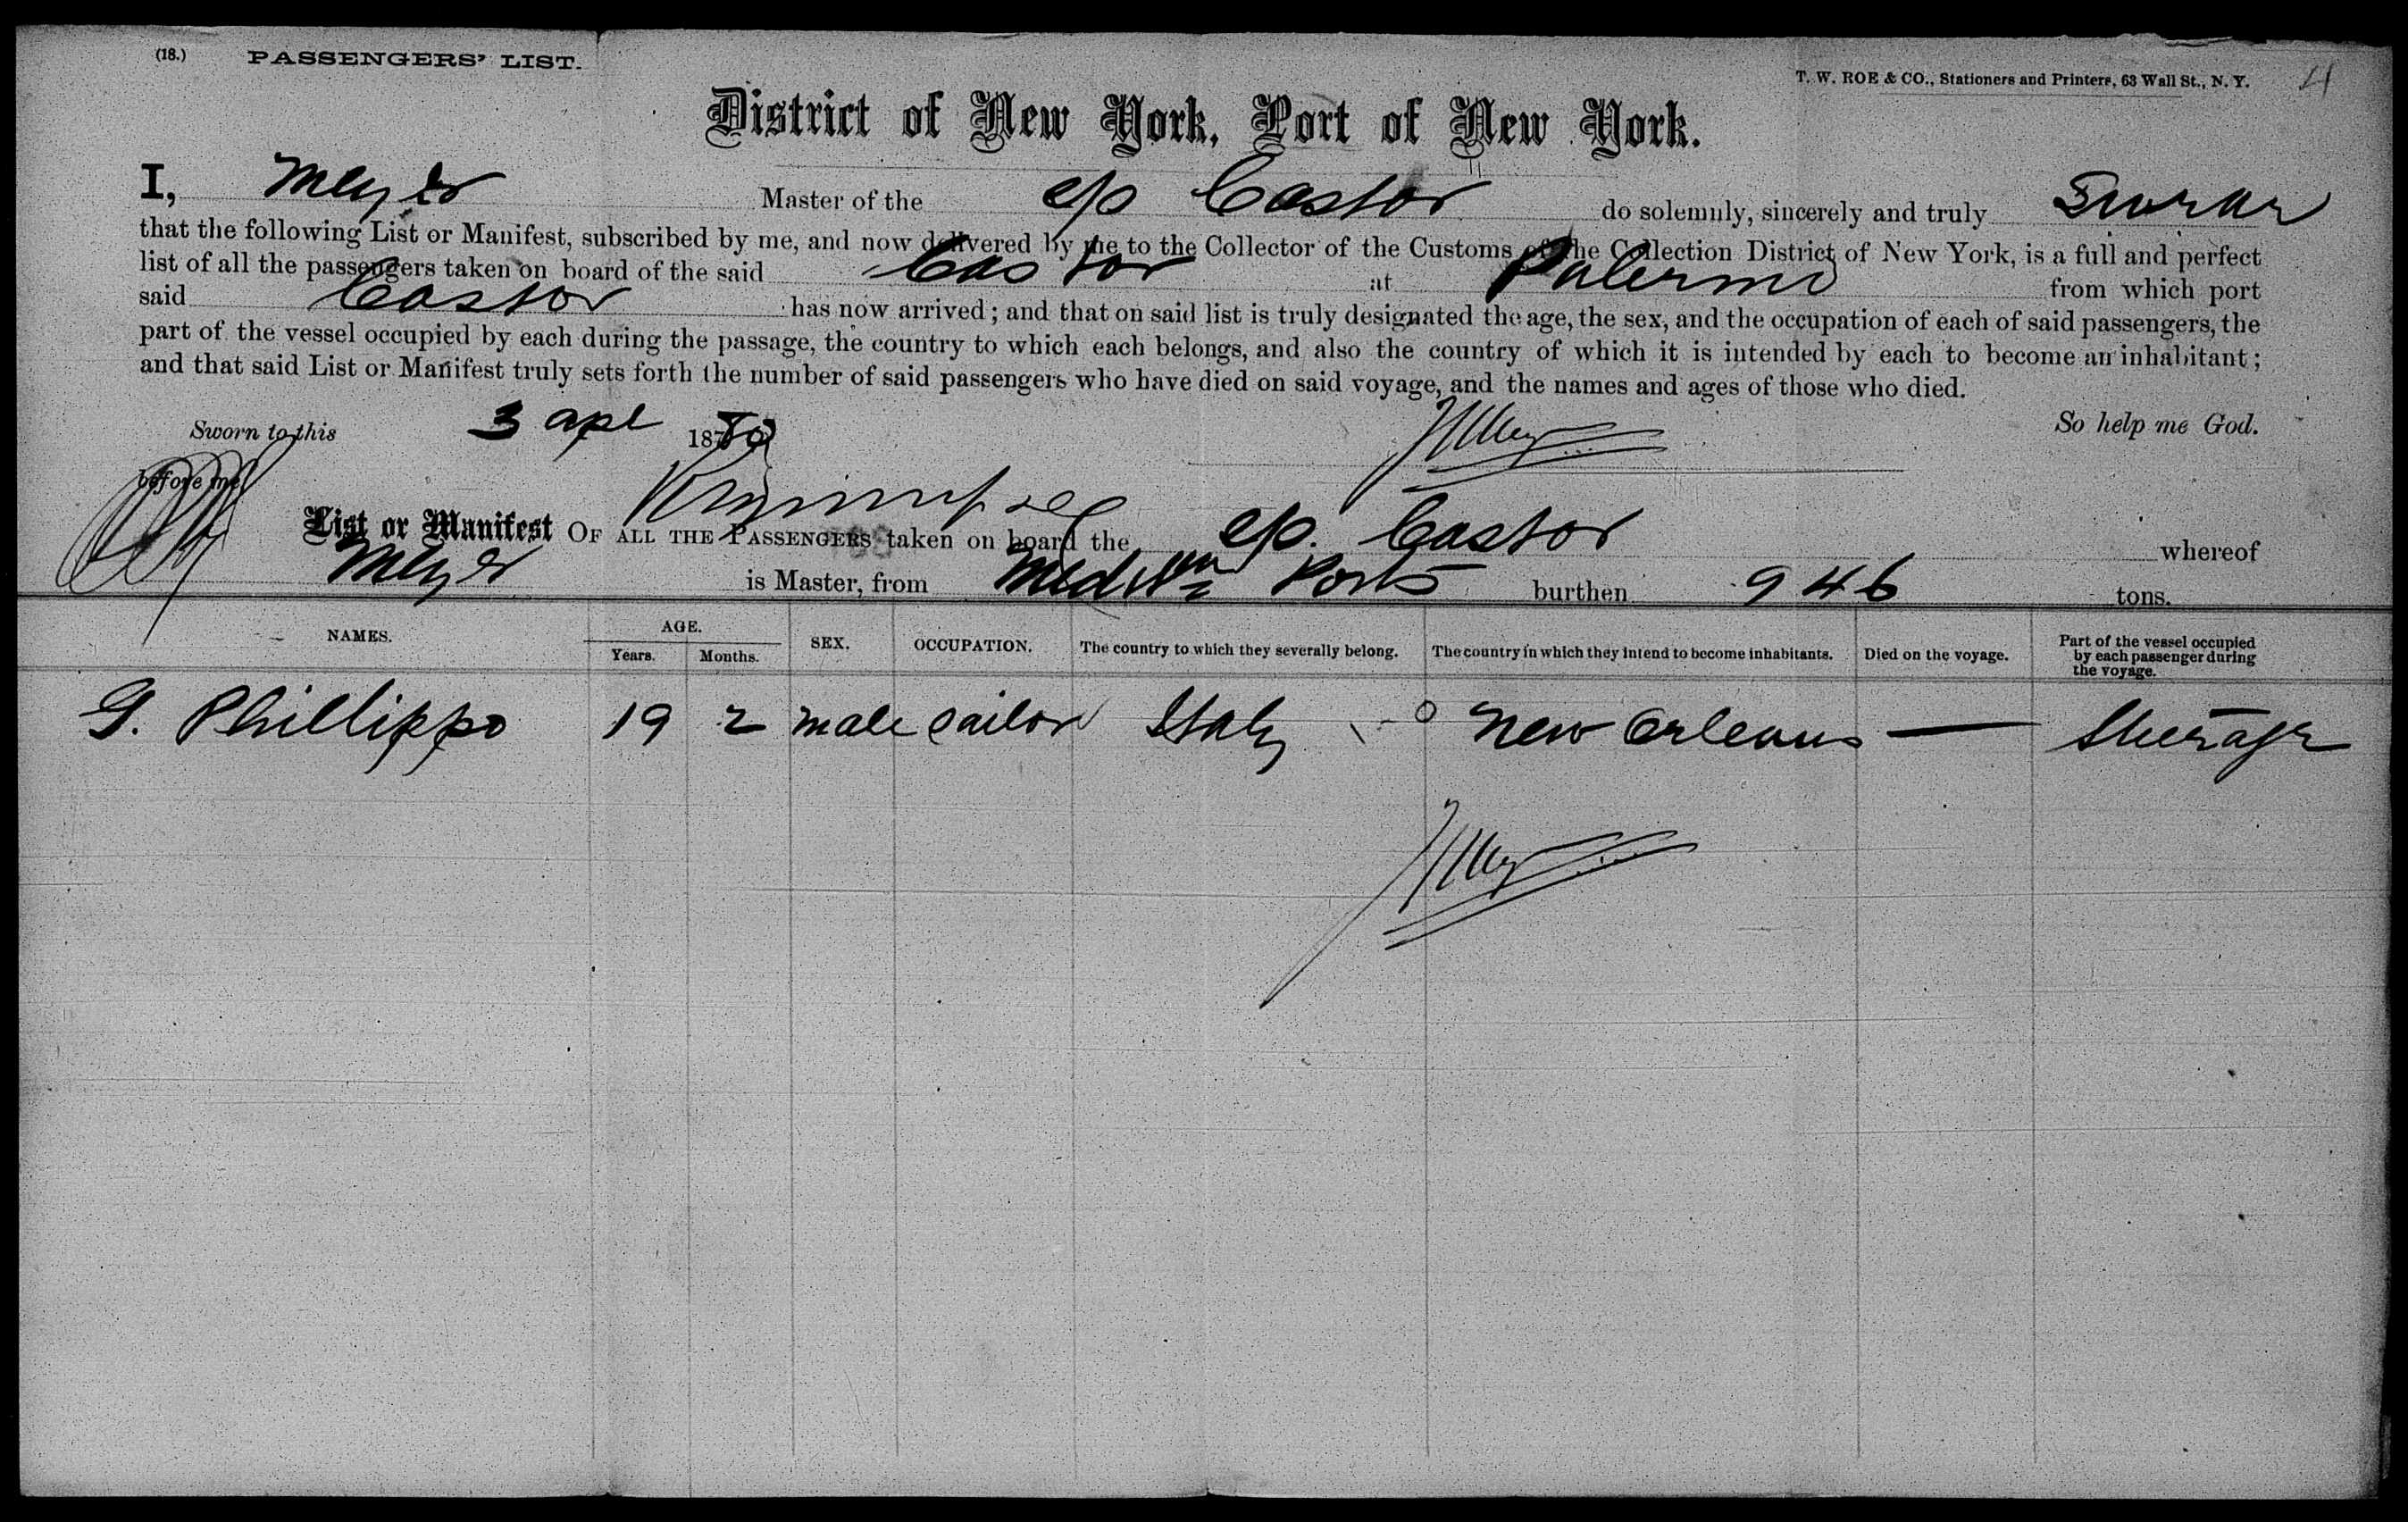 (18.) PASSENGERS' LIST.
T. W. ROE & CO., Stationers and Printers, 63 Wall St., N. Y. 4
District of New York, Port of New York.
I, Meyer Master of the s/s Castor do solemnly, sincerely and truly Swear
that the following List or Manifest, subscribed by me, and now delivered by me to the Collector of the Customs of the Collection District of New York, is a full and perfect
list of all the passengers taken on board of the said Castor at Palermo from which port
said Castor has now arrived; and that on said list is truly designated the age, the sex, and the occupation of each of said passengers, the
part of the vessel occupied by each during the passage, the country to which each belongs, and also the country of which it is intended by each to become an inhabitant;
and that said List or Manifest truly sets forth the number of said passengers who have died on said voyage, and the names and ages of those who died.
Sworn to this 3 apl 1880 So help me God.
before me
List or Manifest OF ALL THE PASSENGERS taken on board the s/s. Castor whereof
Meyer is Master, from Ports burthen 946 tons.
NAMES. AGE. Years. Months. SEX. OCCUPATION. The country to which they severally belong. The country in which they intend to become inhabitants. Died on the voyage. Part of the vessel occupied by each passenger during the voyage.
G. Phillippo 19 2 male sailor Italy New Orleans — Steerage